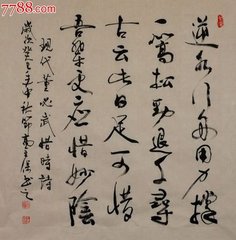 逆水行舟用力撑
一篙松劲退千寻
古云此日足可惜
吾辈更应惜妙陰
现代董必武惜時詩
歲次癸巳年中秋節
7788.com